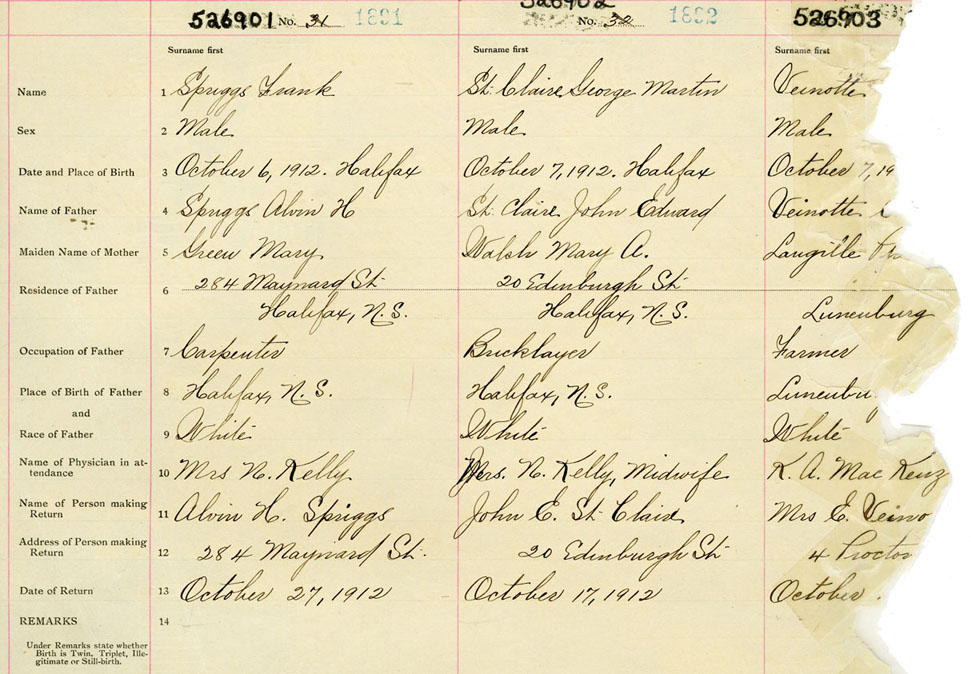 526901 No. 31 1891 526902 No. 32 1892 526903
Surname first Surname first Surname first
Name 1 Spriggs Frank St. Claire George Martin Veinotte
Sex 2 Male Male Male
Date and Place of Birth 3 October 6, 1912. Halifax October 7, 1912. Halifax October 7, 19
Name of Father 4 Spriggs Alvin H St. Claire John Edward Veinotte
Maiden Name of Mother 5 Green Mary Walsh Mary A. Langille
284 Maynard St. 20 Edinburgh St.
Residence of Father 6
Halifax, N.S. Halifax, N.S. Lunenburg
Occupation of Father 7 Carpenter Bricklayer Farmer
Place of Birth of Father 8 Halifax, N.S. Halifax, N.S. Lunenbu
and
Race of Father 9 White White White
Name of Physician in at-
tendance 10 Mrs N. Kelly Mrs. N. Kelly, Midwife K. A. Mac Kenz
Name of Person making
Return 11 Alvin H. Spriggs John E. St. Claire Mrs E. Veino
Address of Person making
Return 12 284 Maynard St. 20 Edinburgh St. 4 Proctor
Date of Return 13 October 27, 1912 October 17, 1912 October
REMARKS 14
Under Remarks state whether
Birth is Twin, Triplet, Ille-
gitimate or Still-birth.